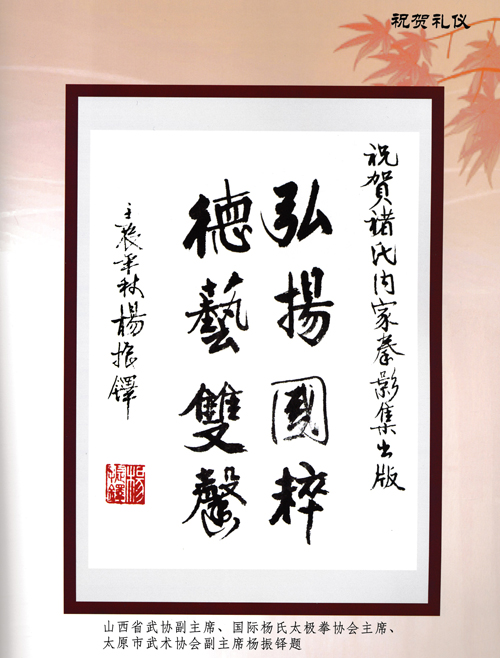 祝贺礼仪
祝賀褚氏内家拳影集出版
弘揚國粹
德藝雙馨
壬辰年秋楊振鐸
楊振鐸
山西省武协副主席、国际杨氏太极拳协会主席、
太原市武术协会副主席杨振铎题